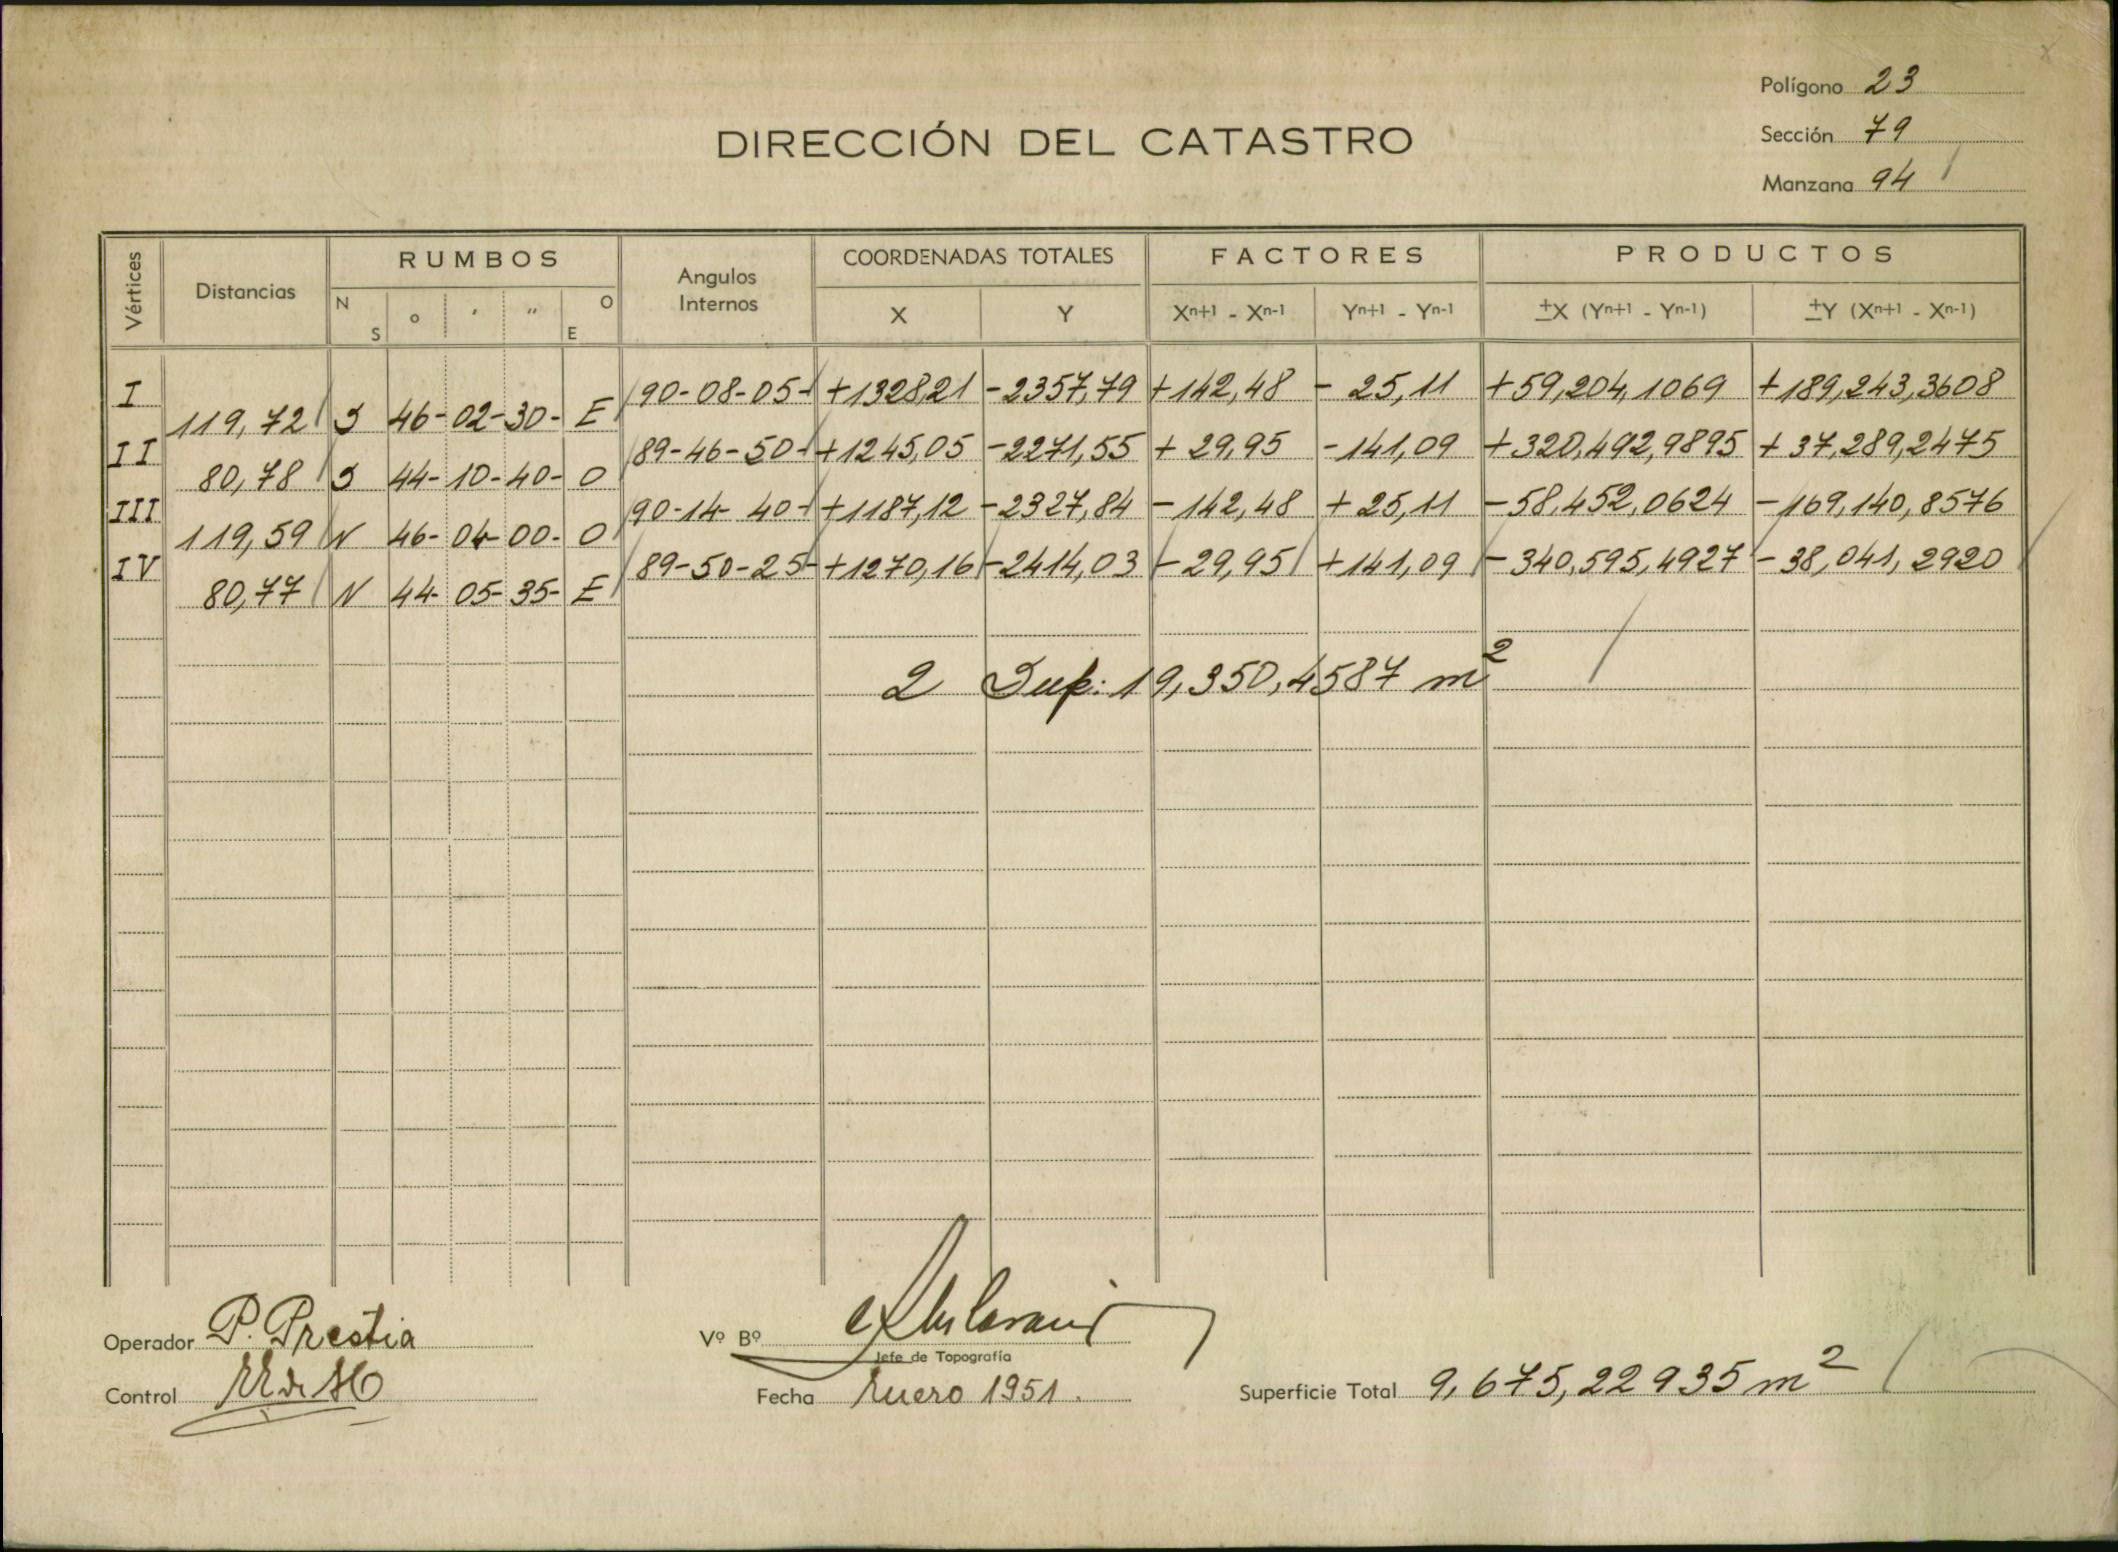 Polígono 23
DIRECCIÓN DEL CATASTRO
Sección 79
Manzana 94
Vértices Distancias RUMBOS Angulos Internos COORDENADAS TOTALES FACTORES PRODUCTOS
N S o ' " O E X Y Xn+1 - Xn-1 Yn+1 - Yn-1 ±X (Yn+1 - Yn-1) ±Y (Xn+1 - Xn-1)
I 90-08-05- +1328,21 -2357,79 +142,48 - 25,11 +59,204,1069 +189,243,3608
119,72 S 46-02-30- E
II 89-46-50- +1245,05 -2271,55 + 29,95 -141,09 +320,492,9895 + 37,289,2475
80,78 S 44-10-40- O
III 90-14-40- +1187,12 -2327,84 -142,48 + 25,11 -58,452,0624 -169,140,8576
119,59 N 46-04-00- O
IV 89-50-25- +1270,16 -2414,03 -29,95 +141,09 -340,595,4927 -38,041,2920
80,77 N 44-05-35- E
2 Sup: 19,350,4587 m²
Operador P. Prestia
Vº Bº
Jefe de Topografía
Control
Fecha Enero 1951.
Superficie Total 9,675,22935 m²